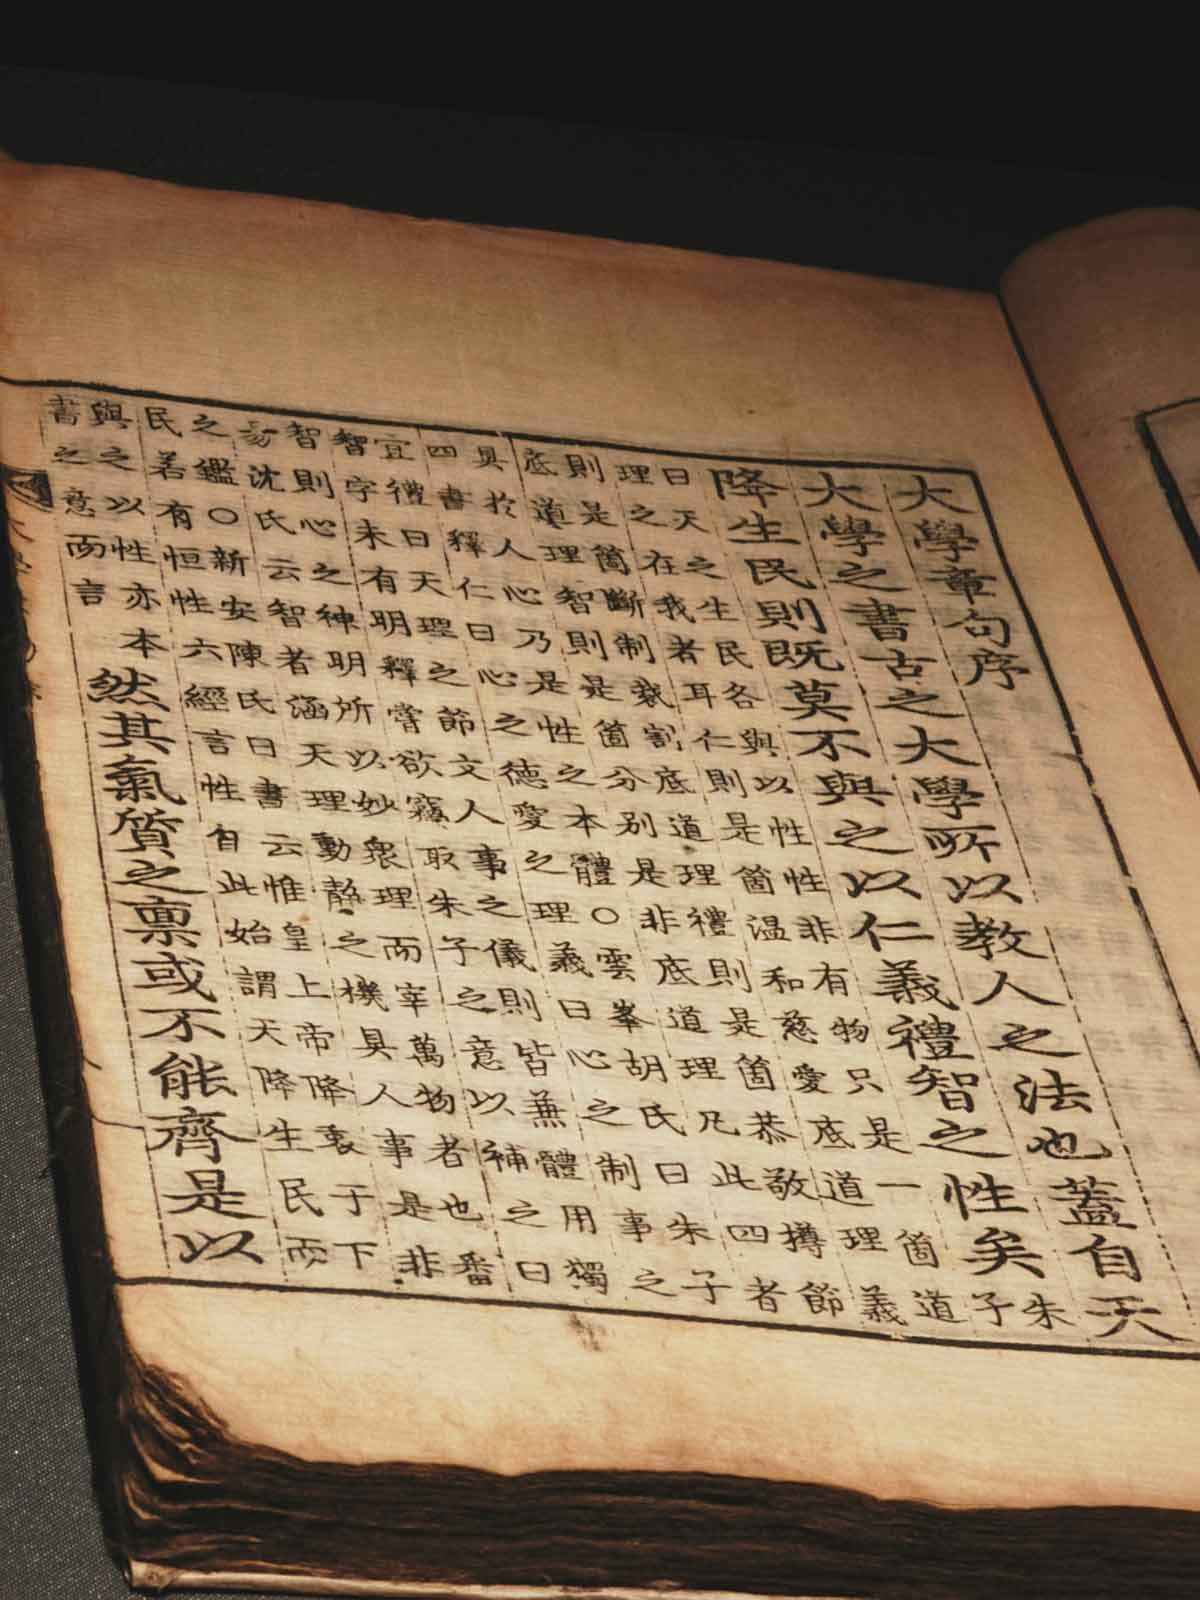 大學章句序
大學之書古之大學所以教人之法也蓋自天
降生民則既莫不與之以仁義禮智之性矣
朱
子
曰天之生民各與以性性非有物只是一箇道
理之在我者耳仁則是箇温和慈愛底道理義
則是箇斷制裁割底道理禮則是箇恭敬撙節
底道理智則是箇分别是非底道理凡此四者
具於人心乃是性之本體○雲峯胡氏曰朱子
四書釋仁曰心之德愛之理義曰心之制事之
宜禮曰天理之節文人事之儀則皆兼體用獨
智字未有明釋嘗欲竊取朱子之意以補之曰
智則心之神明所以妙衆理而宰萬物者也番
昜沈氏云智者涵天理動靜之機具人事是非
之鑑○新安陳氏曰書云惟皇上帝降衷于下
民若有恒性六經言性自此始謂天降生民而
與之以性亦本
書之意而言
然其氣質之稟或不能齊是以